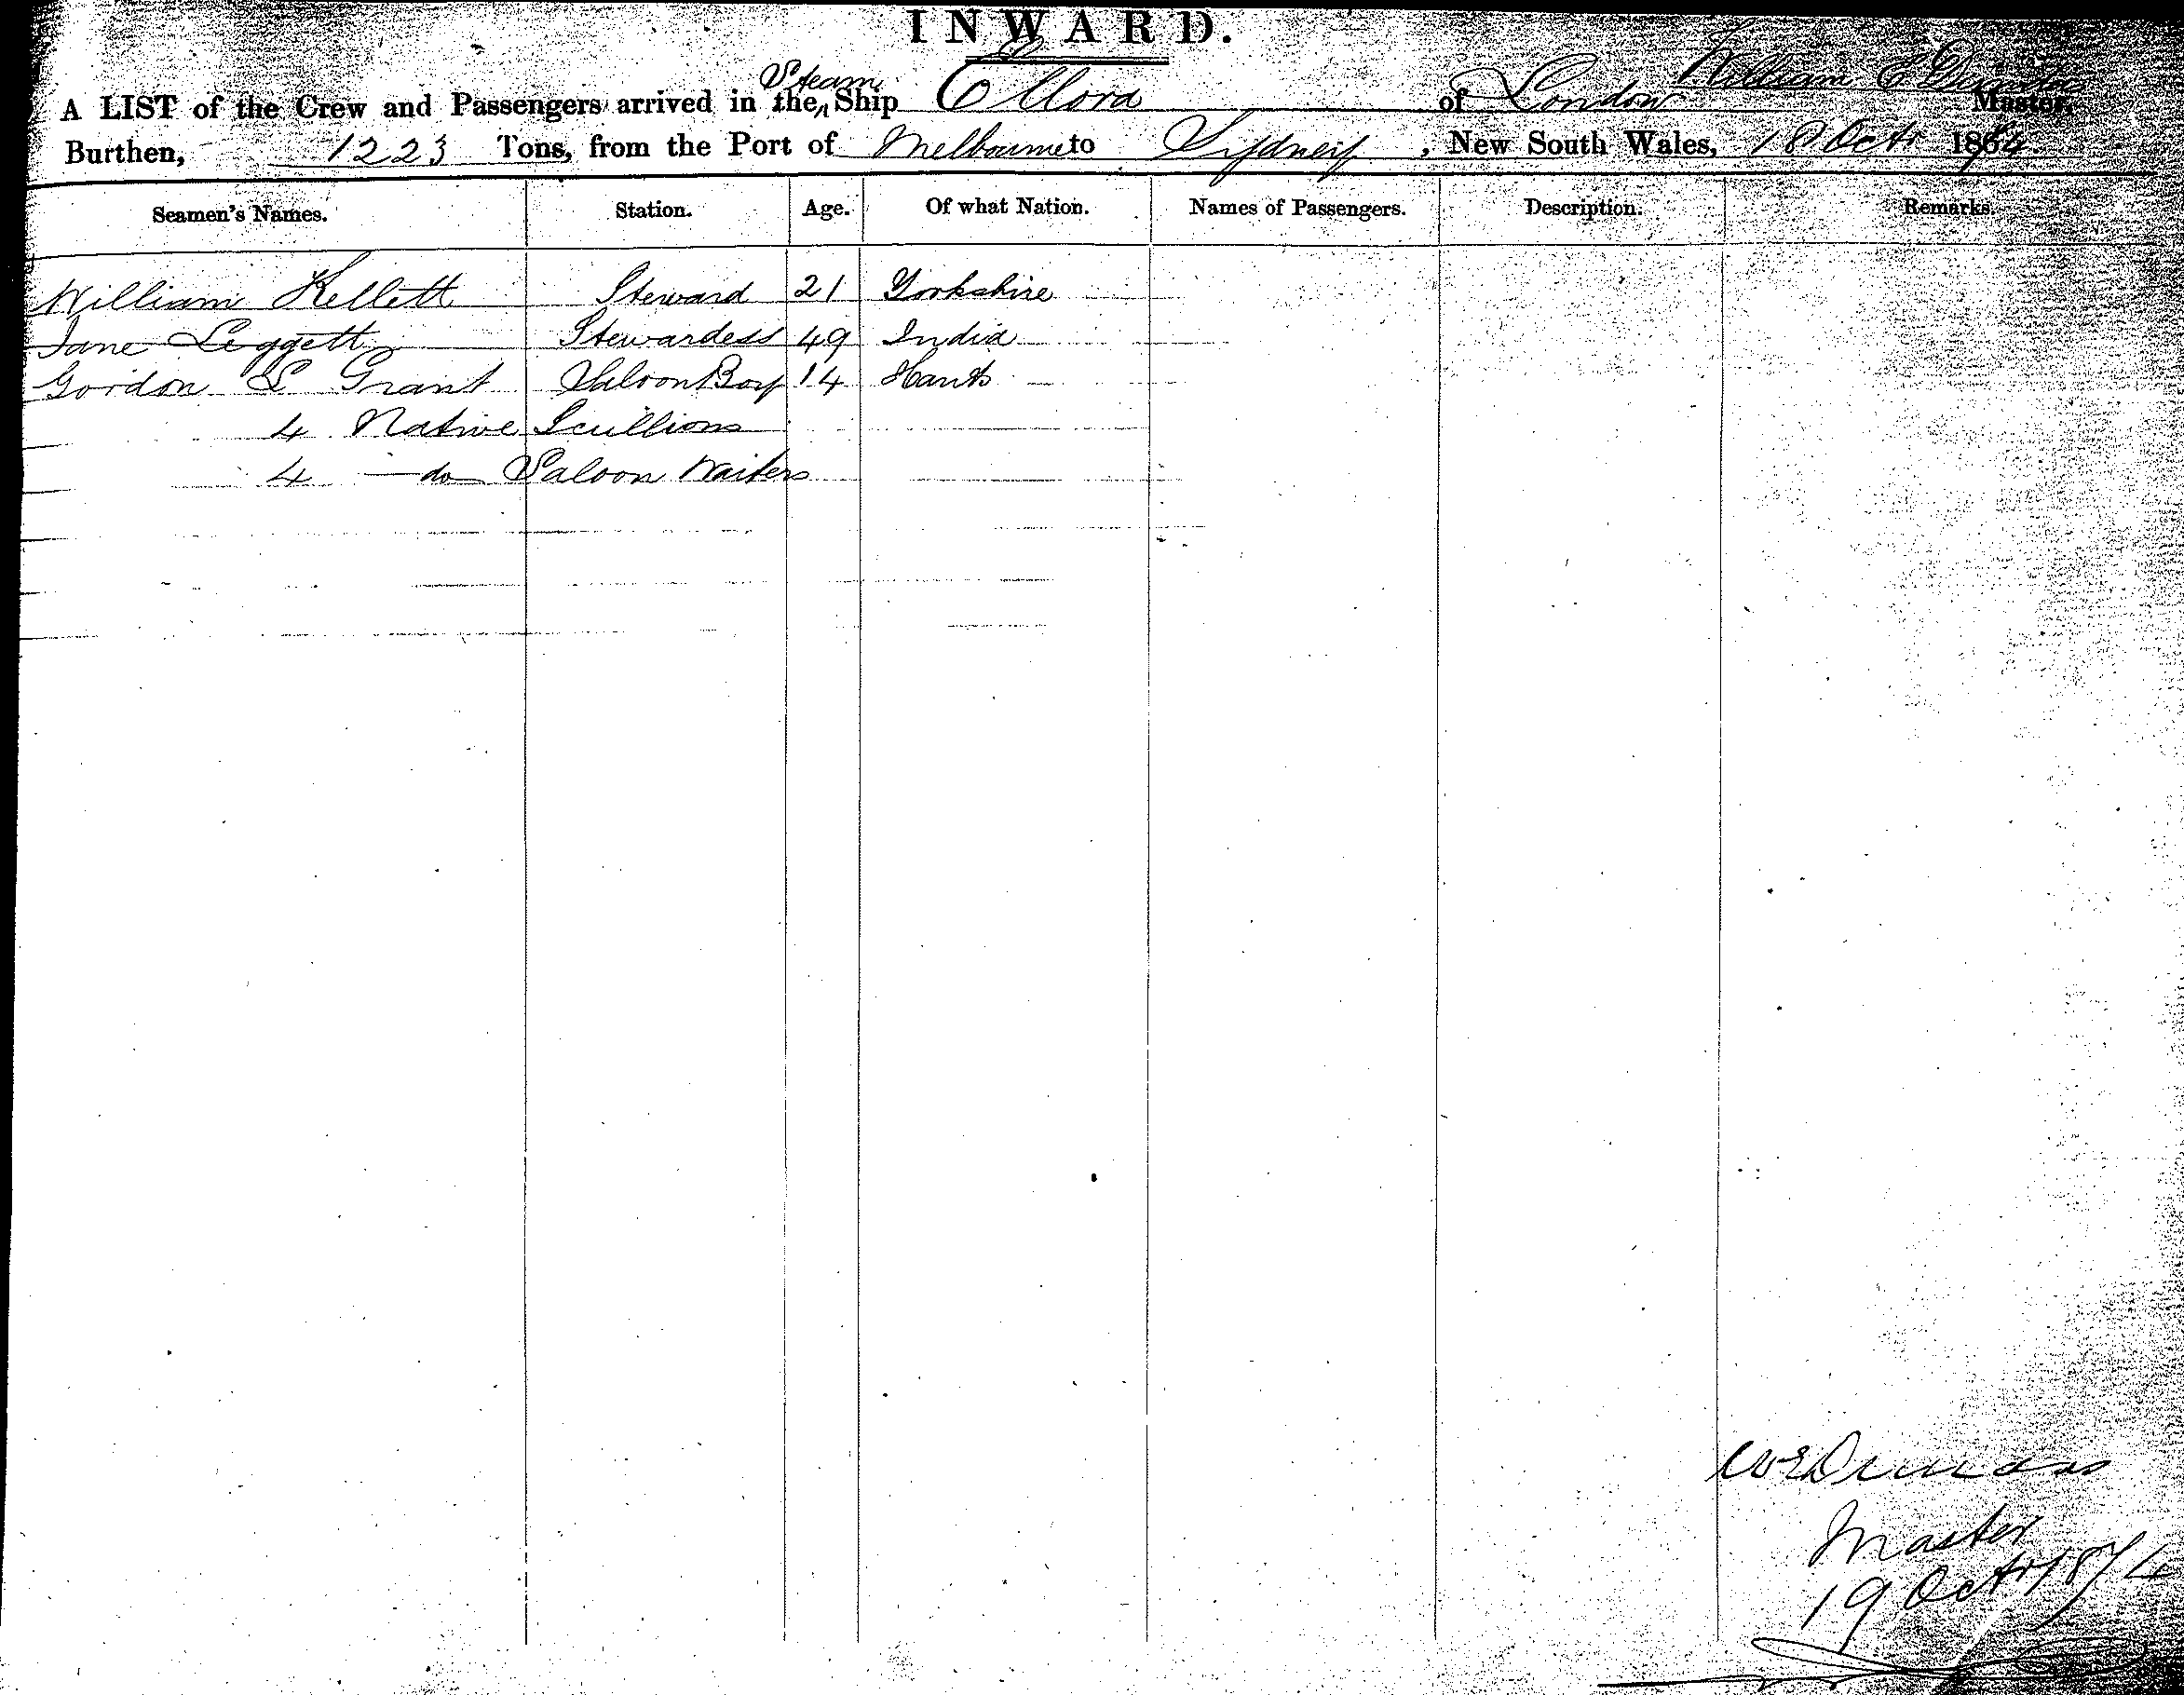 INWARD.
A LIST of the Crew and Passengers arrived in the Steam Ship Ellora of London William E Master,
Burthen, 1223 Tons, from the Port of Melbourne to Sydney, New South Wales, 18 Octr 18
Seamen's Names. Station. Age. Of what Nation. Names of Passengers. Description. Remarks.
William Kellett Steward 21 Yorkshire
Jane Leggett Stewardess 49 India
Gordon L Grant Saloon Boy 14 Hants
4 Native Scullions
4 do Saloon Waiters
Master
19 Octr 1874